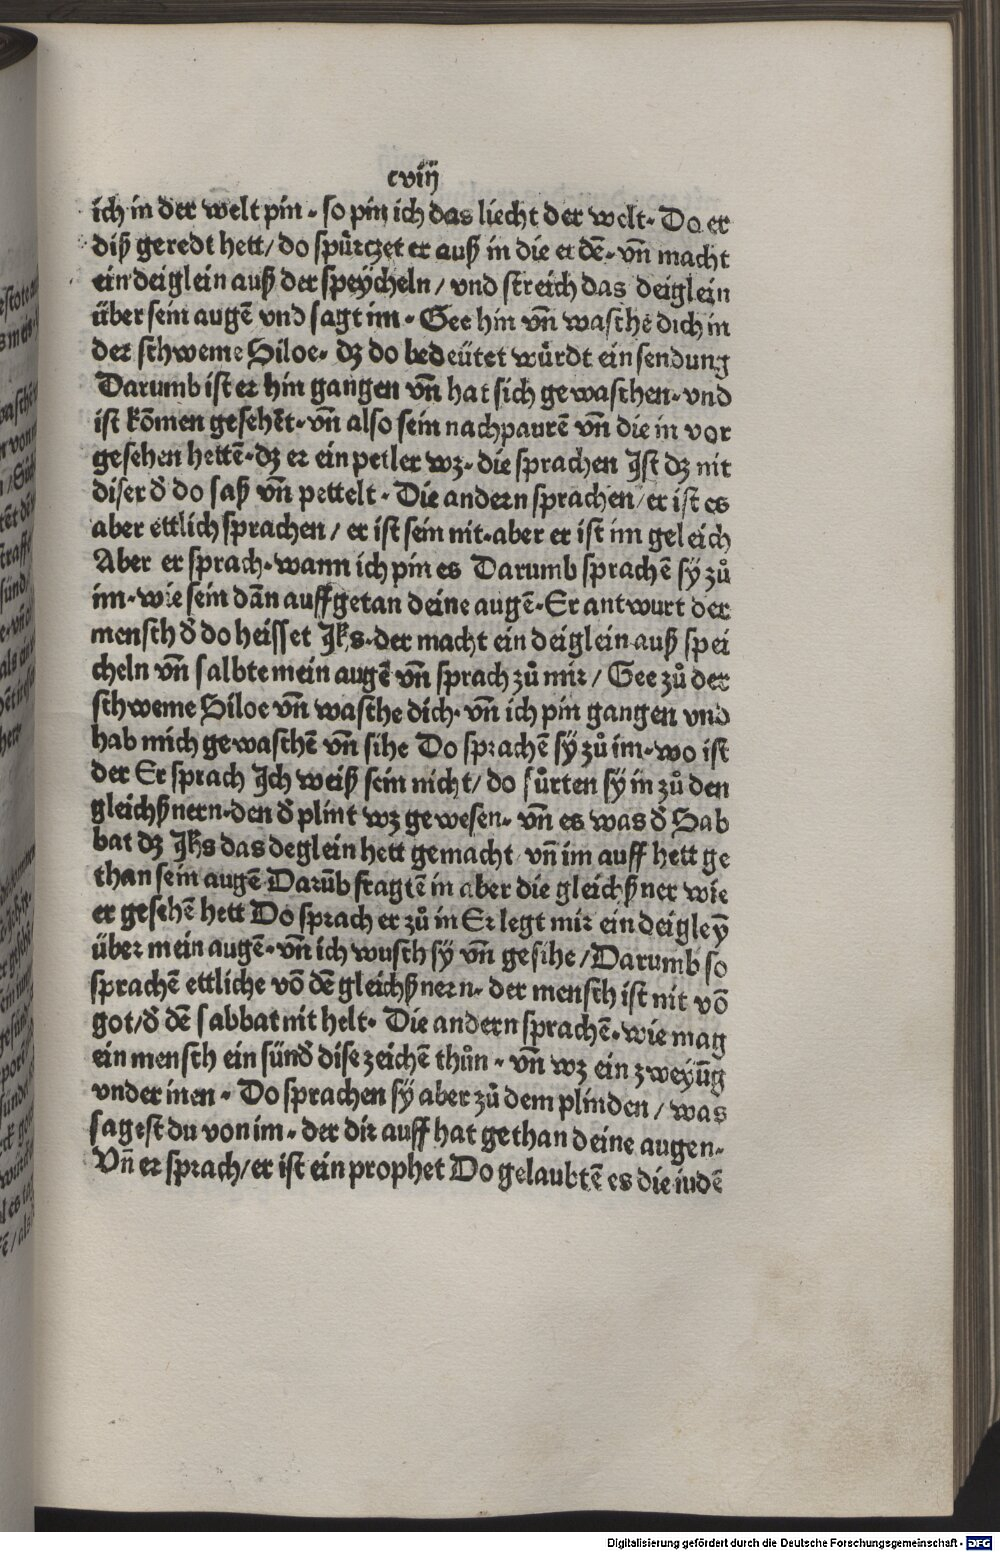 cviij
ich in der welt pin · so pin ich das liecht der welt · Do er
diß geredt hett / do spürczet er auß in die erdē · vn̄ macht
ein deiglein auß der speÿcheln / vnd streich das deiglein
über sein augē vnd sagt im · Gee hin vn̄ wasche dich in
der schweme Siloe · dz do bedeütet würdt ein sendung
Darumb ist er hin gangen vn̄ hat sich gewaschen · vnd
ist kōmen gesehēt · vn̄ also sein nachpaurē vn̄ die in vor
gesehen hettē · dz er ein petler wz · die sprachen Ist dz nit
diser d̄ do saß vn̄ pettelt · Die andern sprachen / er ist es
aber ettlich sprachen / er ist sein nit · aber er ist im geleich
Aber er sprach · wann ich pin es Darumb sprachē sÿ zů
im · wie sein dān auffgetan deine augē · Er antwurt der
mensch d̄ do heisset Jhs · der macht ein deiglein auß spei
cheln vn̄ salbte mein augē vn̄ sprach zů mir / Gee zů der
schweme Siloe vn̄ wasche dich · vn̄ ich pin gangen vnd
hab mich gewaschē vn̄ sihe Do sprachē sÿ zů im · wo ist
der Er sprach Ich weiß sein nicht / do fůrten sÿ in zů den
gleichßnern · den d̄ plint wz gewesen · vn̄ es was d̄ Sab
bat dz Jhs das deglein hett gemacht vn̄ im auff hett ge
than sein augē Darūb fragtē in aber die gleichßner wie
er gesehē hett Do sprach er zů in Er legt mir ein deigleȳ
über mein augē · vn̄ ich wusch sÿ vn̄ gesihe / Darumb so
sprachē ettliche vō dē gleichßnern · der mensch ist nit vō
got / d̄ dē sabbat nit helt · Die andern sprachē · wie mag
ein mensch ein sünd̄ dise zeichē thůn · vn̄ wz ein zweyūg
vnder inen · Do sprachen sÿ aber zů dem plinden / was
sagest du von im · der dir auff hat gethan deine augen ·
Vn̄ er sprach / er ist ein prophet Do gelaubtē es die iudē
Digitalisierung gefördert durch die Deutsche Forschungsgemeinschaft - DFG